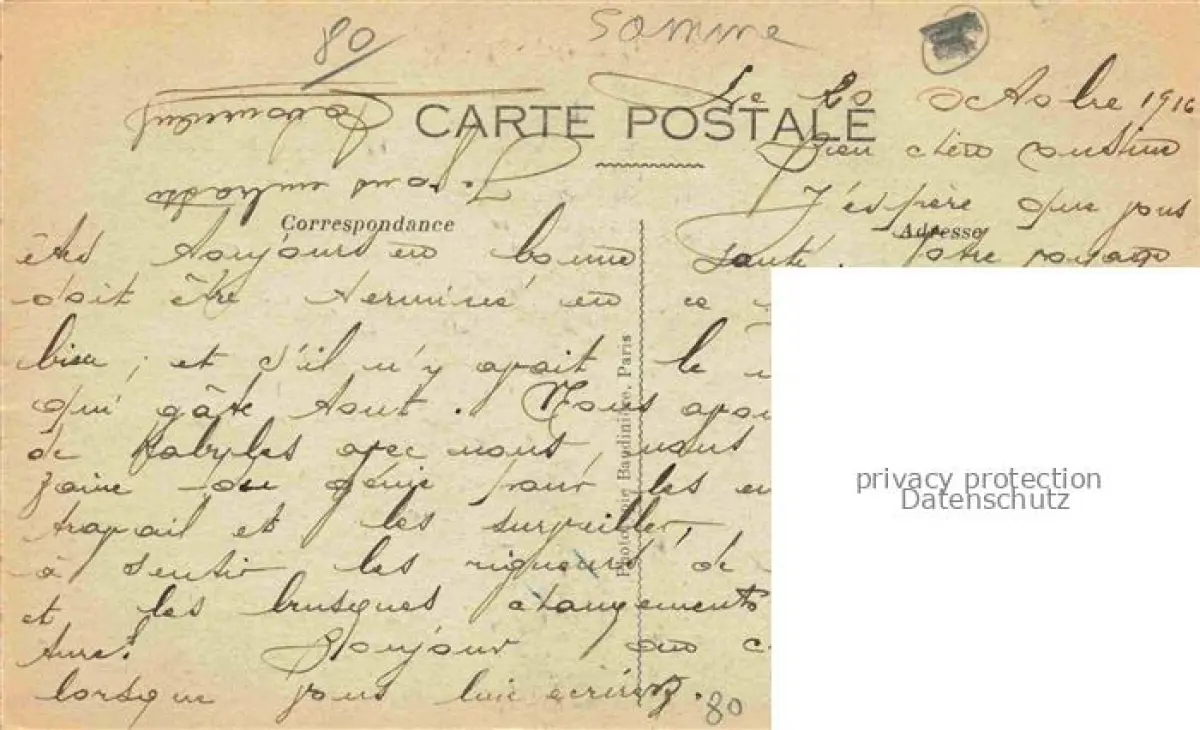 80
Somme
CARTE POSTALE
Le 20 octobre 1916
Bien chère cousine
Je vous embrasse
J'espère que vous
Correspondance
Adresse
êtes toujours en bonne santé. Votre voyage
doit être terminé en ce
bien, et s'il n'y avait le
qui gâte tout. Nous avons
de Kabyles avec nous, nous
zaine du génie pour les
travail et les surveiller,
à sentir les rigueurs de
et les brusques changements
ture! Bonjour au
lorsque vous lui écrirez.
Photo Baudinière, Paris
80
privacy protection
Datenschutz